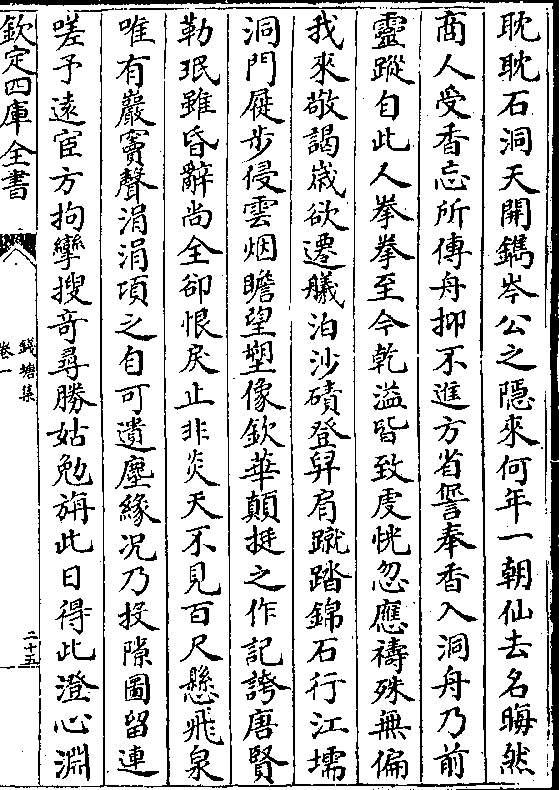 耽耽石洞天開鐫岑公之隱來何年一朝仙去名晦然
商人受香忘所傳舟抑不進方省諐奉香入洞舟乃前
靈蹤自此人拳拳至今乾溢皆致虔恍忽應禱殊無偏
我來敬謁嵗欲遷艤泊沙磧登舁肩蹴踏錦石行江壖
洞門屣步侵雲烟瞻望塑像欽華顛挺之作記誇唐賢
勒珉雖昏辭尚全卻恨戾止非炎天不見百尺懸飛泉
唯有巖竇聲涓涓項之自可遺塵緣况乃投隙圖留連
嗟予遠宦方拘攣搜奇尋勝姑勉旃此日得此澄心淵
欽定四庫全書
錢塘集
卷一
二十五